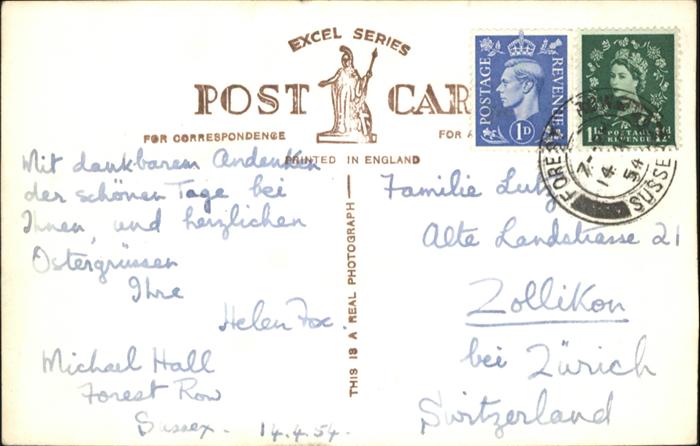 EXCEL SERIES
POST CAR
FOR CORRESPONDENCE
FOR A
PRINTED IN ENGLAND
THIS IS A REAL PHOTOGRAPH
POSTAGE REVENUE
1D
POSTAGE
REVENUE
FOREST
SUSSE
14
54
Mit dankbarem Andenken
der schönen Tage bei
Ihnen, und herzlichen
Ostergrüssen
Ihre
Helen Fox.
Michael Hall
Forest Row
Sussex. 14.4.54.
Familie Lutz
Alte Landstrasse 21
Zollikon
bei Zürich
Switzerland